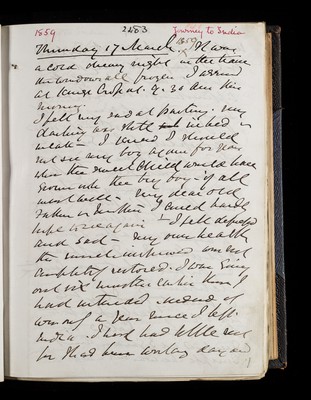 1859 2483 Journey to India
Thursday 17 March. 1859 It was
a cold dreary night in the train
the windows all frozen I arrived
at Kings Cross at 4.30 am this
morning.
I felt very sad at parting. My
darling was still in bed
I knew I should
not see my boy again for years
when the sweet child would have
grown into the big boy if all
went well - My dear old
Father & Mother I could hardly
hope to see again - I felt depressed
and sad - my own health
tho much improved was not
completely restored. I was going
out six months earlier than I
had intended. instead of
a year since I left
India. I had had little rest
for I had been working day and